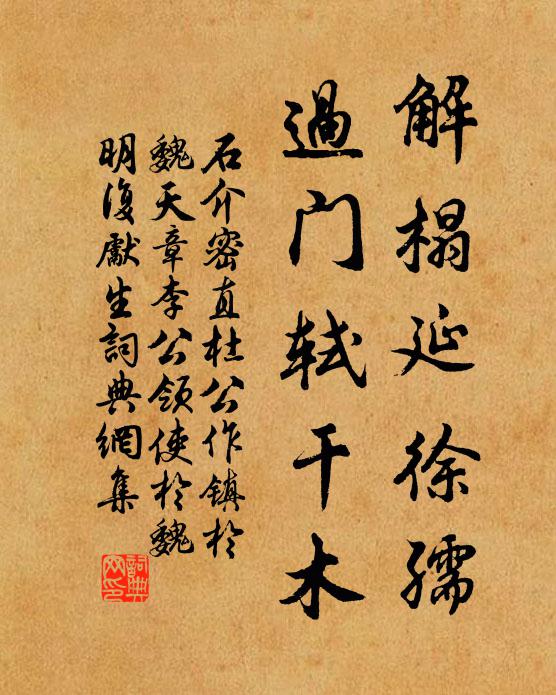 解榻延徐孺
過门轼干木
石介密直杜公作镇於
魏天章李公领使於魏
明復獻生詞典網集
詞典
网印